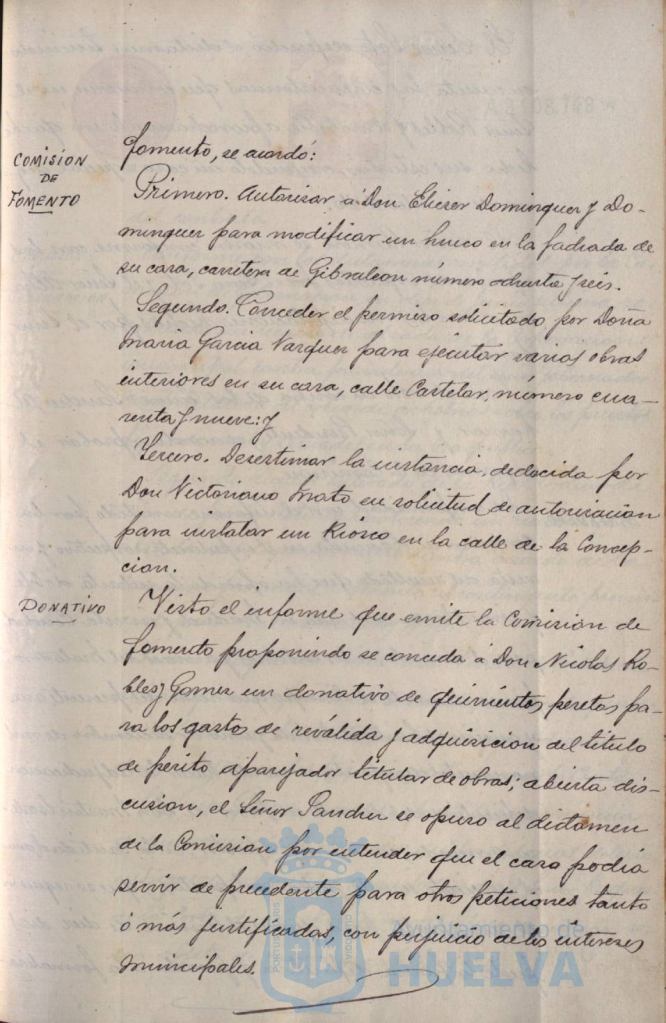 COMISION
DE
FOMENTO
fomento, se acordó:
Primero. Autorizar á Don Eliezer Dominguez y Do-
minguez para modificar un hueco en la fachada de
su casa, carretera de Gibraleon número ochenta y seis.
Segundo. Conceder el permiso solicitado por Doña
Maria Garcia Vazquez para ejecutar varias obras
interiores en su casa, calle Castelar, número cua-
renta y nueve: y
Tercero. Desestimar la instancia, deducida por
Don Victoriano Mato en solicitud de autorizacion
para instalar un Kiosco en la calle de la Concep-
cion.
DONATIVO
Visto el informe que emite la Comision de
fomento proponiendo se conceda á Don Nicolas Ro-
bles y Gomez un donativo de quinientas pesetas pa-
ra los gastos de reválida y adquisicion del título
de perito aparejador titular de obras; abierta dis-
cusion, el Señor Sanchez se opuso al dictamen
de la Comision por entender que el caso podia
servir de precedente para otras peticiones tanto
ó más justificadas, con perjuicio de los intereses
municipales.
Ayuntamiento de
HUELVA